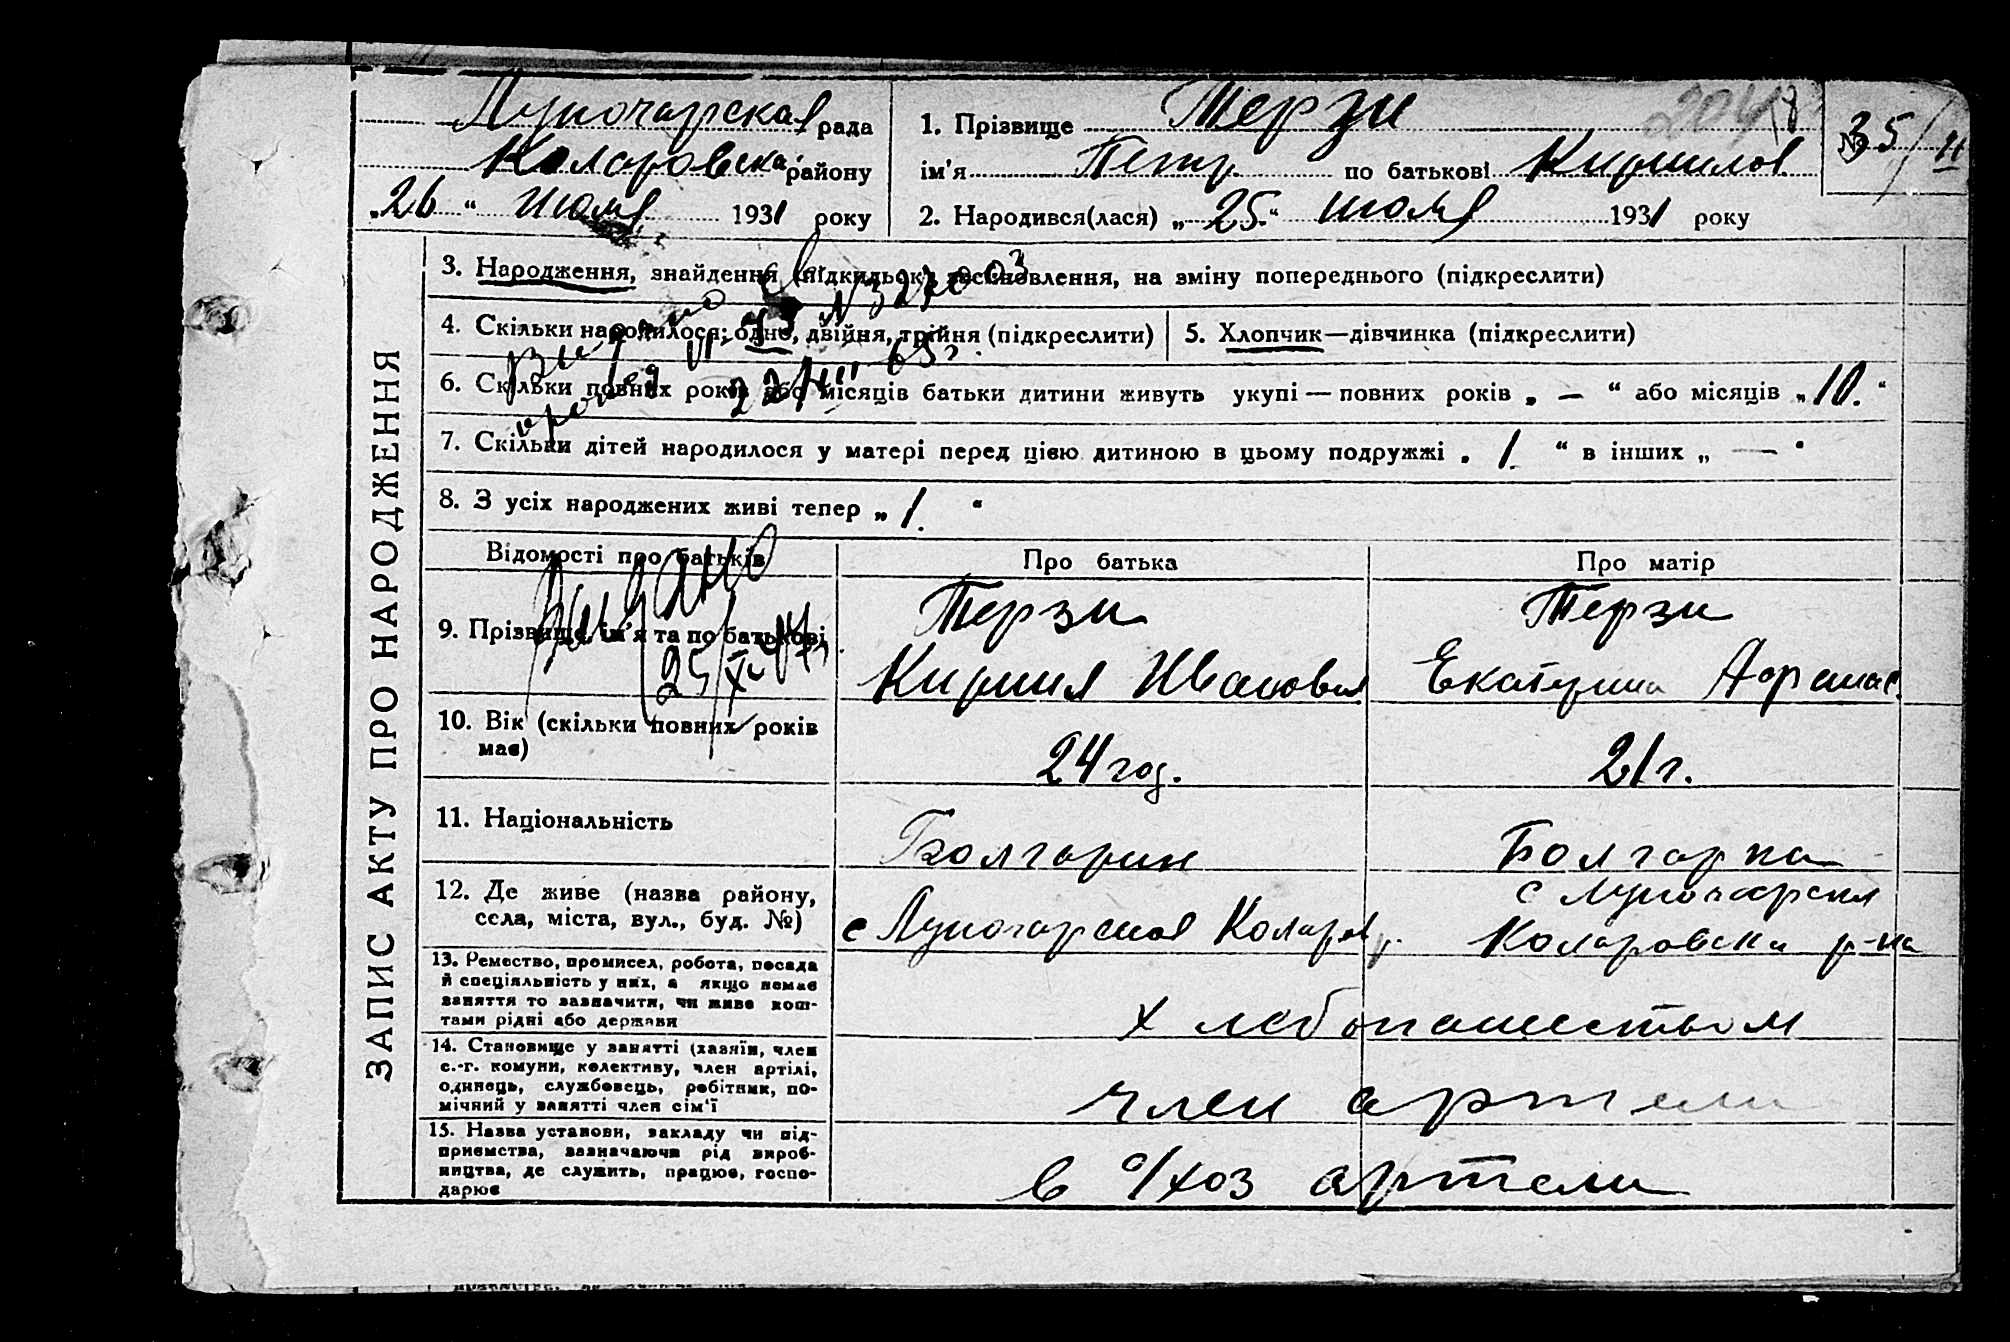 Луночарская рада
Коларовска району
„26“ Июля 1931 року
1. Прізвище Терзи
ім'я Петр по батькові Кирилов
2. Народився(лася) „25“ июля 1931 року
№ 35/
ЗАПИС АКТУ ПРО НАРОДЖЕННЯ
3. Народження, знайдення (підкидьок) всиновлення, на зміну попереднього (підкреслити)
4. Скільки народилося: одно, двійня, трійня (підкреслити)
5. Хлопчик—дівчинка (підкреслити)
6. Скільки повних років або місяців батьки дитини живуть укупі — повних років „ — “ або місяців „10.“
7. Скільки дітей народилося у матері перед цією дитиною в цьому подружжі „ 1. “ в інших „ — “
8. З усіх народжених живі тепер „ 1. “
Відомості про батьків
Про батька
Про матір
9. Прізвище, ім'я та по батькові
Терзи
Кирилл Иванович
Терзи
Екатерина Афанас.
Выдано
25/X
10. Вік (скільки повних років
має)
24 год.
21 г.
11. Національність
Болгарин
Болгарка
12. Де живе (назва району,
села, міста, вул., буд. №)
с Луночарская Коларов р.
с Луночарская
Коларовска р-на
13. Ремество, промисел, робота, посада
й спеціяльність у них, а якщо немає
заняття то зазначити, чи живе кош-
тами рідні або держави
Хлебопашеством
14. Становище у занятті (хазяїн, член
с.-г. комуни, колективу, член артілі,
одинець, службовець, робітник, по-
мічний у занятті член сім'ї
член артели
15. Назва установи, закладу чи під-
приємства, зазначаючи рід вироб-
ництва, де служить, працює, госпо-
дарює
в с/хоз артели